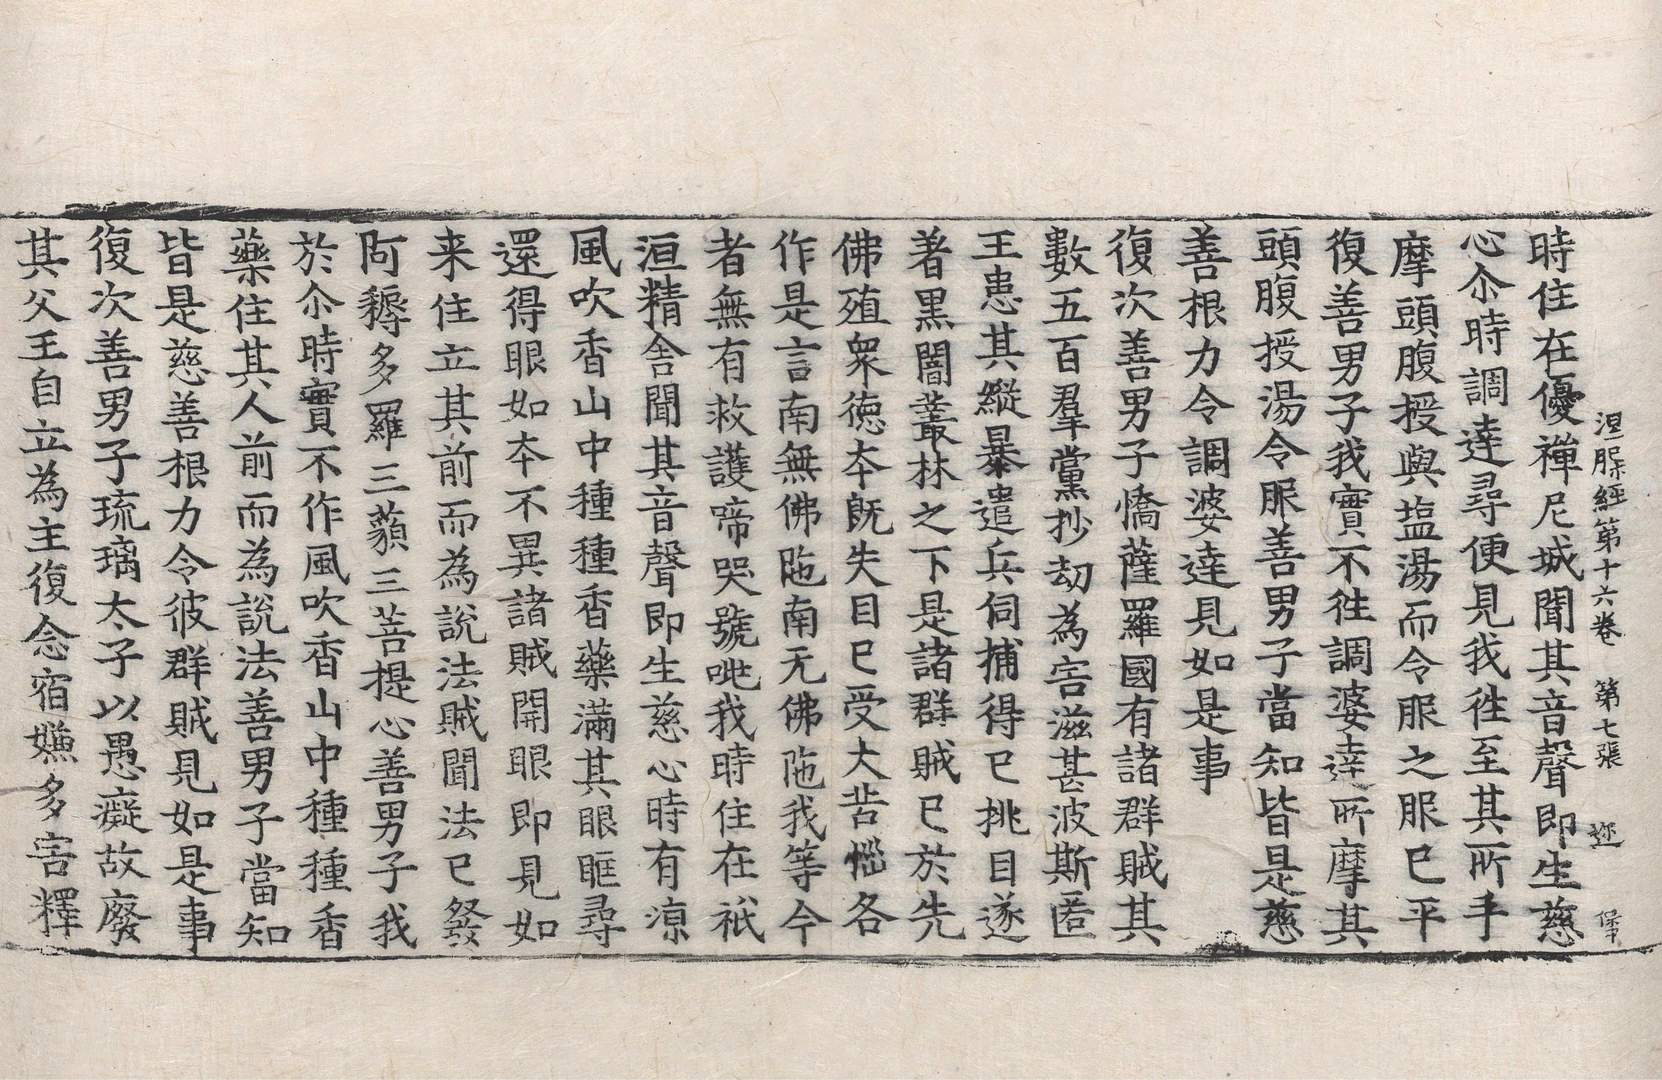 涅槃經第十六卷 第七張 迩
時住在優禪尼城聞其音聲即生慈
心尒時調達尋便見我徃至其所手
摩頭腹授與塩湯而令服之服已平
復善男子我實不徃調婆達所摩其
頭腹授湯令服善男子當知皆是慈
善根力令調婆達見如是事
復次善男子憍薩羅國有諸群賊其
數五百羣黨抄劫為害滋甚波斯匿
王患其縱暴遣兵伺捕得已挑目遂
著黑闇叢林之下是諸群賊已於先
佛殖衆德夲旣失目已受大苦惱各
作是言南無佛陁南无佛陁我等今
者無有救護啼哭號咷我時住在祇
洹精舍聞其音聲即生慈心時有凉
風吹香山中種種香藥滿其眼眶尋
還得眼如夲不異諸賊開眼即見如
来住立其前而為說法賊聞法已發
阿耨多羅三藐三菩提心善男子我
於尒時實不作風吹香山中種種香
藥住其人前而為說法善男子當知
皆是慈善根力令彼群賊見如是事
復次善男子琉璃太子以愚癡故廢
其父王自立為主復念宿嫌多害釋